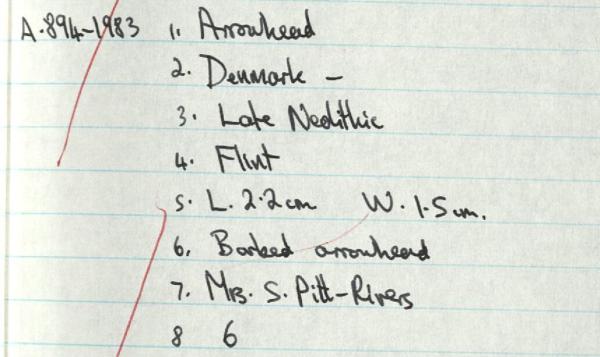 A.894-1983 1. Arrowhead
2. Denmark –
3. Late Neolithic
4. Flint
5. L. 2.2cm W. 1.5cm.
6. Barbed arrowhead
7. Mrs. S. Pitt-Rivers
8 6